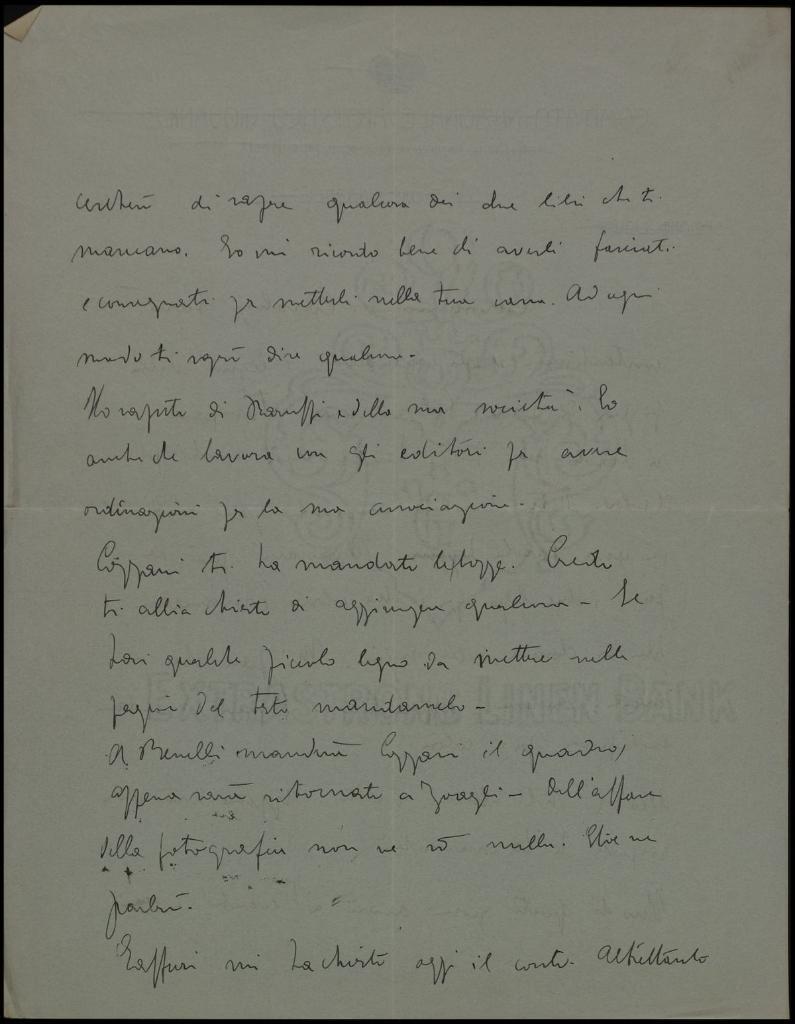 cercherò di sapere qualcosa dei due libri che ti
mancano. Io mi ricordo bene di averli fasciati
e consegnati per metterli nella tua cassa. Ad ogni
modo ti saprò dire qualcosa -
Ho saputo di e della sua società. So
anche che lavora con gli editori per avere
ordinazioni per la sua associazione -
Cozzani ti ha mandato le bozze. Credo
ti abbia chiesto di aggiungere qualcosa - Se
hai qualche piccolo legno da mettere nelle
pagine del testo mandamelo -
A Benelli manderà Cozzani il quadro,
appena sarà ritornato a Zoagli - Dell'affare
della fotografia non ne so nulla. ne
parlerò.
mi ha chiesto oggi il conto. Altrettanto